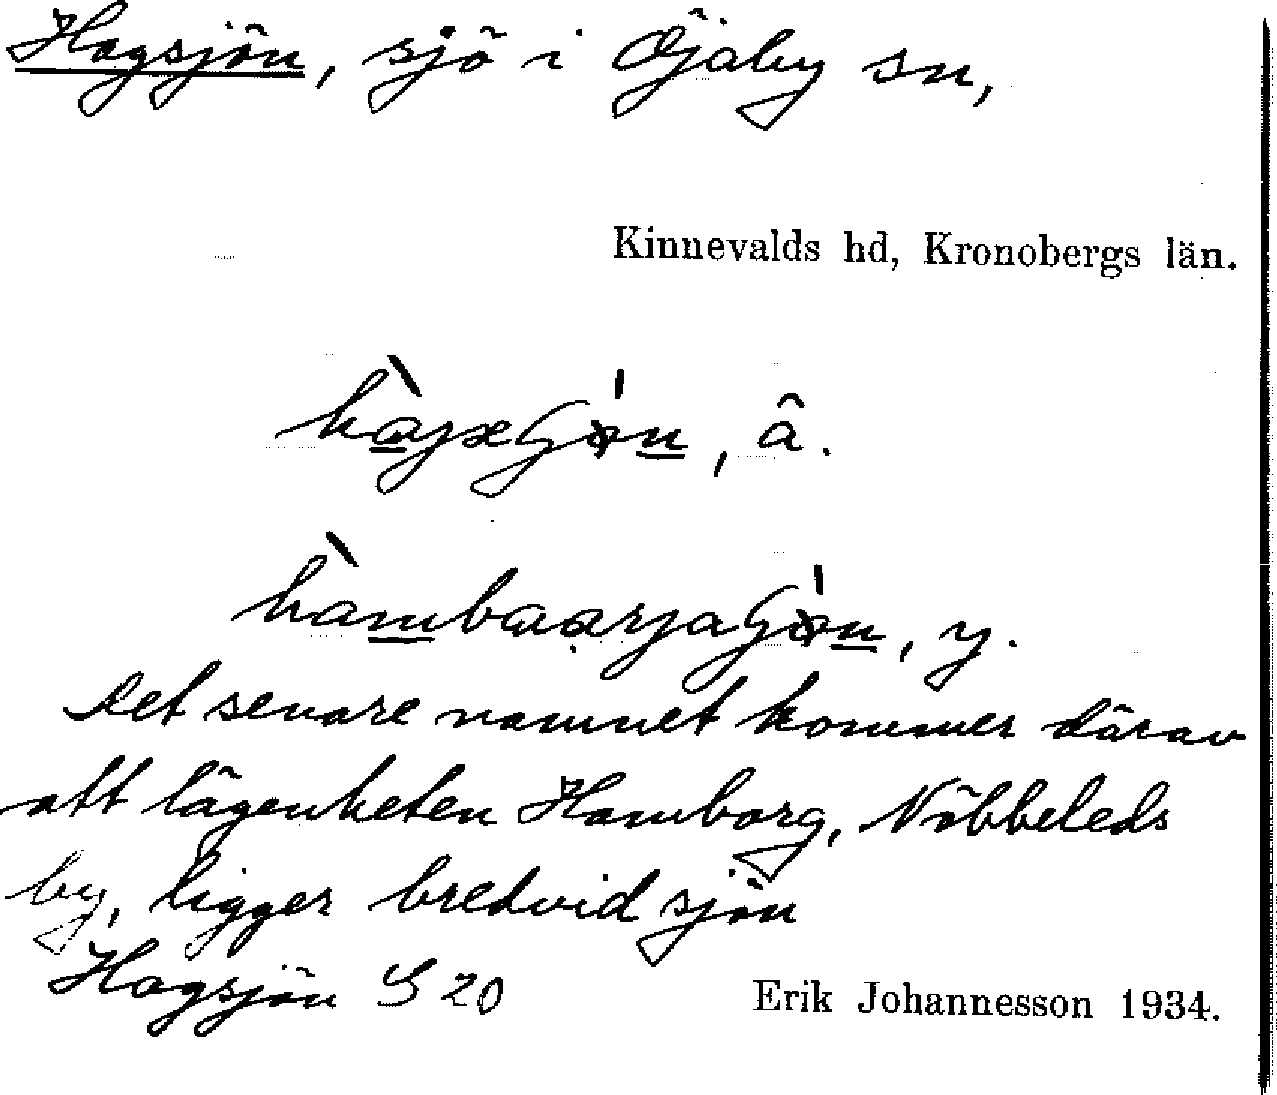 Hagsjön, sjö i Öjaby sn,
Kinnevalds hd, Kronobergs län.
, â.
, y.
Det senare namnet kommer därav
att lägenheten Hamborg, Nöbbeleds
by, ligger bredvid sjön
Hagsjön S 20
Erik Johannesson 1934.